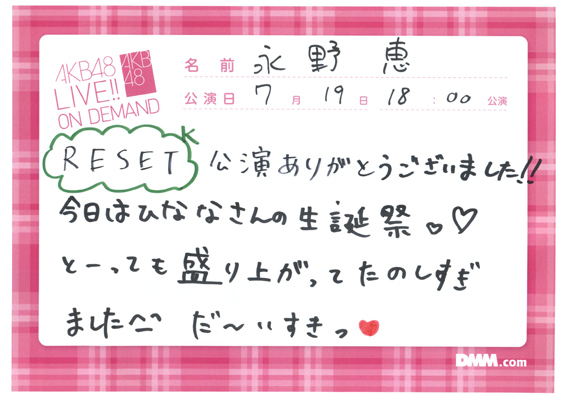 AKB48
LIVE!!
ON DEMAND
AKB
48
名前 永野 恵
公演日 7月19日18:00公演
RESET K 公演ありがとうございました!!
今日はひななさんの生誕祭♡♡
とーっても盛り上がってたのしすぎ
ました^^ だ〜いすきっ♥
DMM.com